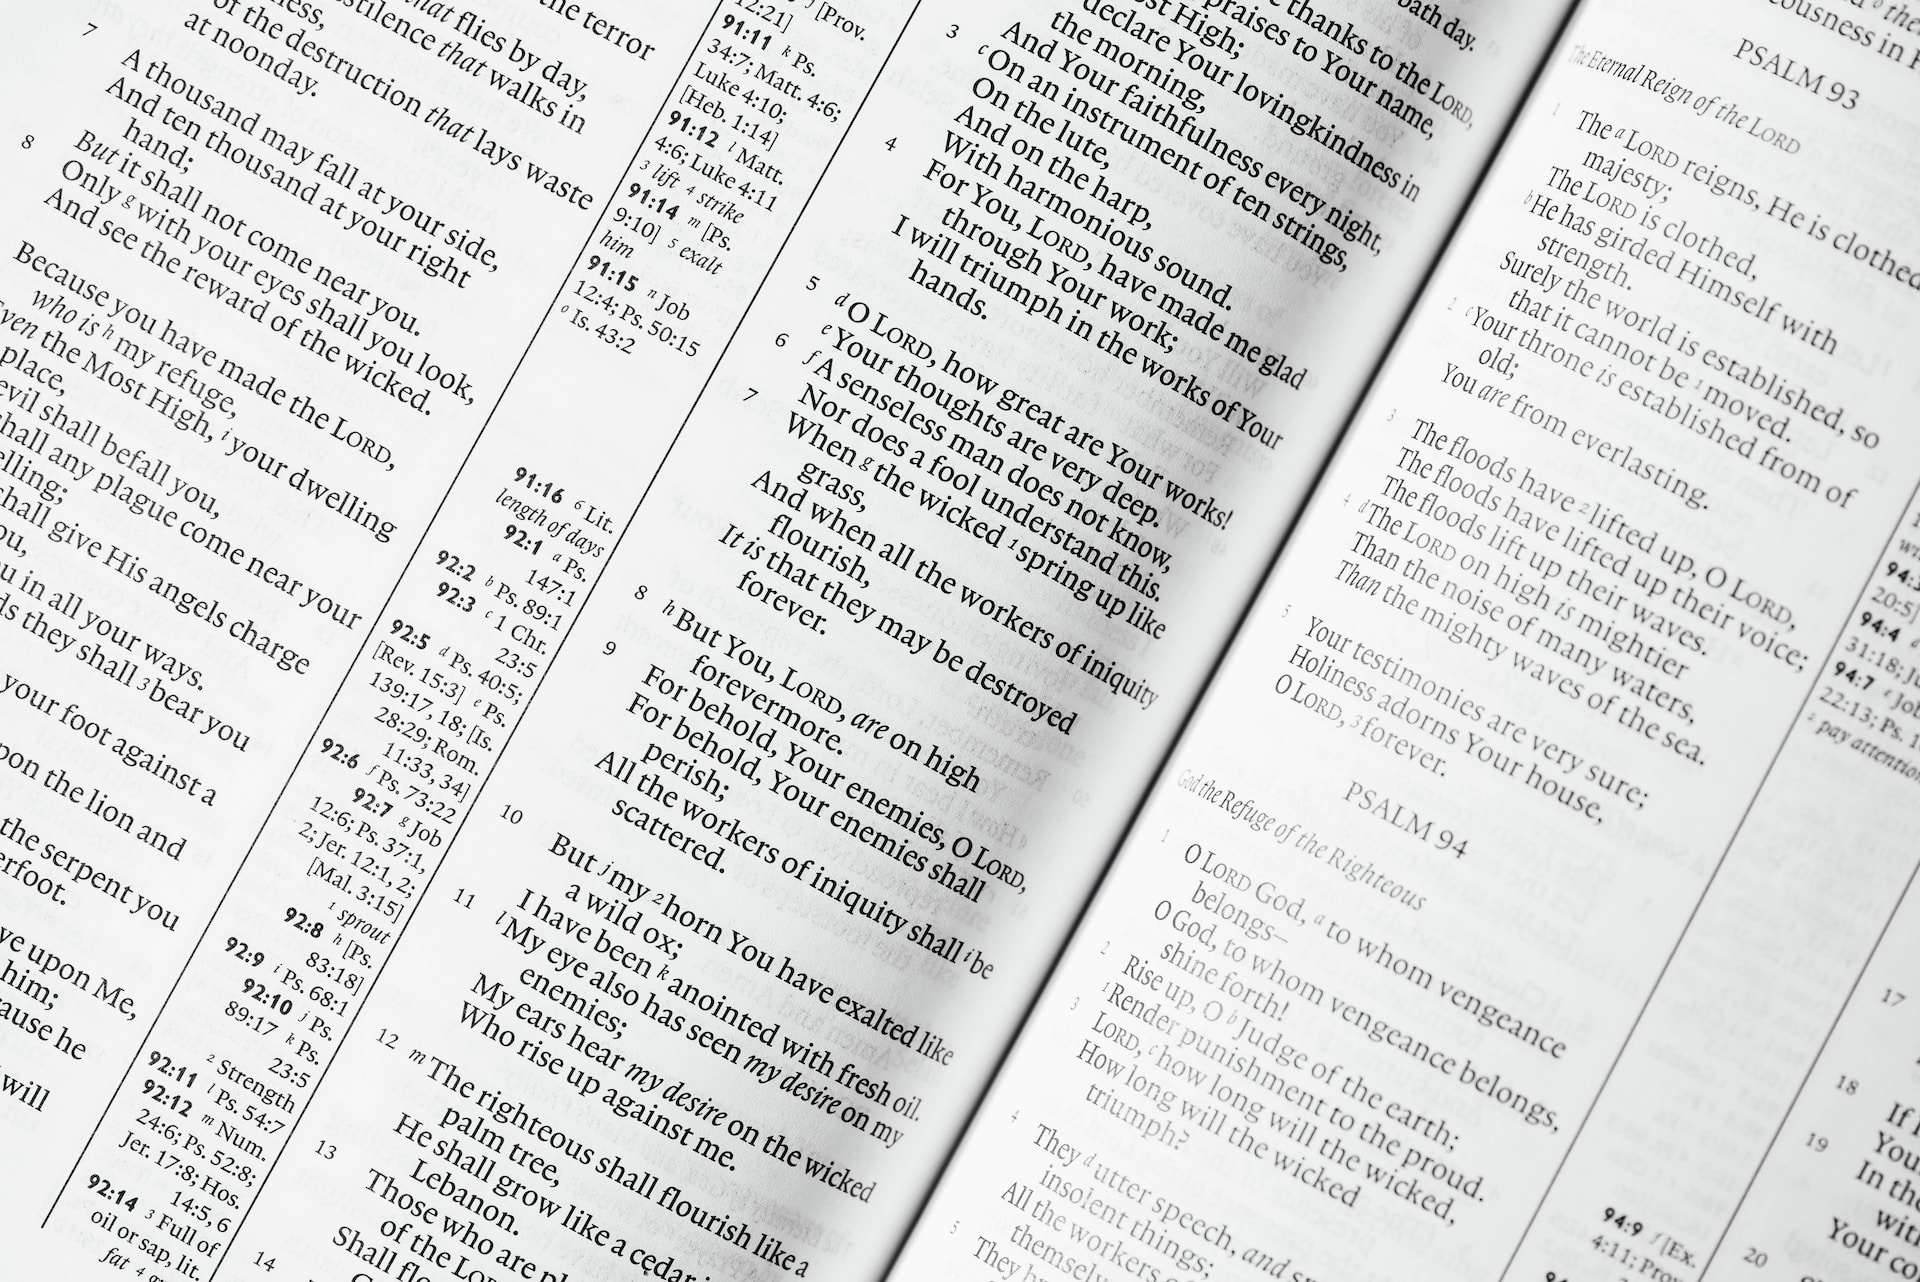 the terror
that flies by day,
pestilence that walks in
of the destruction that lays waste
at noonday.
7
A thousand may fall at your side,
And ten thousand at your right
hand;
But it shall not come near you.
8
Only g with your eyes shall you look,
And see the reward of the wicked.
Because you have made the LORD,
who is h my refuge,
Even the Most High, i your dwelling
place,
evil shall befall you,
shall any plague come near your
dwelling;
shall give His angels charge
you,
in all your ways.
they shall 3 bear you
your foot against a
upon the lion and
the serpent you
underfoot.
upon Me,
him;
because he
will
12:21]
[Prov.
91:11 k Ps.
34:7; Matt. 4:6;
Luke 4:10;
[Heb. 1:14]
91:12 l Matt.
4:6; Luke 4:11
3 lift 4 strike
91:14 m [Ps.
9:10] 5 exalt
him
91:15 n Job
12:4; Ps. 50:15
o Is. 43:2
91:16 6 Lit.
length of days
92:1 a Ps.
147:1
92:2 b Ps. 89:1
92:3 c 1 Chr.
23:5
92:5 d Ps. 40:5;
[Rev. 15:3] e Ps.
139:17, 18; [Is.
28:29; Rom.
11:33, 34]
92:6 f Ps. 73:22
92:7 g Job
12:6; Ps. 37:1,
2; Jer. 12:1, 2;
[Mal. 3:15]
1 sprout
92:8 h [Ps.
83:18]
92:9 i Ps. 68:1
92:10 j Ps.
89:17 k Ps.
23:5
2 Strength
92:11 l Ps. 54:7
92:12 m Num.
24:6; Ps. 52:8;
Jer. 17:8; Hos.
14:5, 6
92:14 3 Full of
oil or sap, lit.
fat 4
bath day.
thanks to the LORD,
praises to Your name,
Most High;
declare Your lovingkindness in
the morning,
And Your faithfulness every night,
3
c On an instrument of ten strings,
On the lute,
And on the harp,
With harmonious sound.
4
For You, LORD, have made me glad
through Your work;
I will triumph in the works of Your
hands.
5
d O LORD, how great are Your works!
e Your thoughts are very deep.
6
f A senseless man does not know,
Nor does a fool understand this.
7
When g the wicked 1 spring up like
grass,
And when all the workers of iniquity
flourish,
It is that they may be destroyed
forever.
8
h But You, LORD, are on high
forevermore.
9
For behold, Your enemies, O LORD,
For behold, Your enemies shall
perish;
All the workers of iniquity shall i be
scattered.
10
But j my 2 horn You have exalted like
a wild ox;
I have been k anointed with fresh oil.
11
l My eye also has seen my desire on my
enemies;
My ears hear my desire on the wicked
Who rise up against me.
12
m The righteous shall flourish like a
palm tree,
He shall grow like a cedar in
Lebanon.
13
Those who are
of the LORD
Shall
14
PSALM 93
The Eternal Reign of the LORD
1
The a LORD reigns, He is clothed
majesty;
The LORD is clothed,
b He has girded Himself with
strength.
Surely the world is established, so
that it cannot be 1 moved.
2
c Your throne is established from of
old;
You are from everlasting.
3
The floods have 2 lifted up, O LORD,
The floods have lifted up their voice;
The floods lift up their waves.
4
d The LORD on high is mightier
Than the noise of many waters,
Than the mighty waves of the sea.
5
Your testimonies are very sure;
Holiness adorns Your house,
O LORD, 3 forever.
PSALM 94
God the Refuge of the Righteous
1
O LORD God, a to whom vengeance
belongs—
O God, to whom vengeance belongs,
shine forth!
2
Rise up, O b Judge of the earth;
Render punishment to the proud.
3
LORD, c how long will the wicked,
How long will the wicked
triumph?
4
They d utter speech, and
insolent things;
All the workers
themselves
5
They
94:4
31:18;
94:7 e Job
22:13; Ps.
2 pay attention
94:9 f [Ex.
4:11; Prov.
17
18
If
19
In the
20